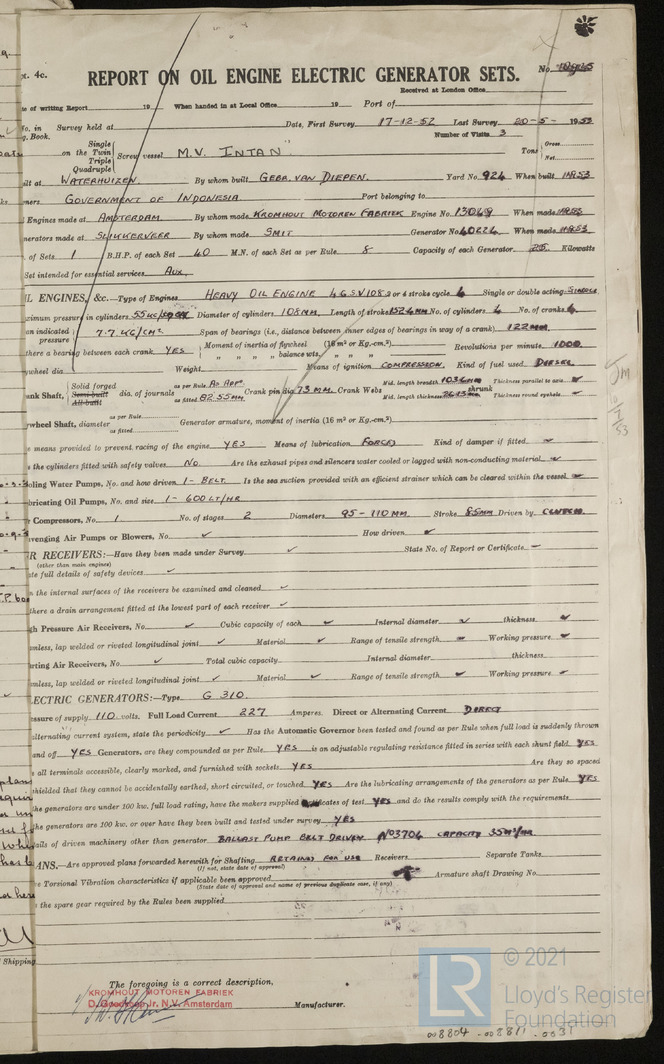 pt. 4c. REPORT ON OIL ENGINE ELECTRIC GENERATOR SETS. No.
Received at London Office
te of writing Report 19 When handed in at Local Office 19 Port of
No. in Survey held at Date, First Survey 17-12-52 Last Survey 20-5-1953
g. Book. Number of Visits 3
on the Single Twin Triple Quadruple Screw vessel M.V. INTAN" Tons Gross Net
ilt at WATERHUIZEN By whom built GEBR. VAN DIEPEN. Yard No. 924 When built 1953
ners GOVERNMENT OF INDONESIA Port belonging to
Engines made at AMSTERDAM By whom made KROMHOUT MOTOREN FABRIEK Engine No. When made 1953
nerators made at SLIKKERVEER By whom made SMIT Generator No. When made 1953
of Sets 1 B.H.P. of each Set 40 M.N. of each Set as per Rule 8 Capacity of each Generator 25 Kilowatts
Set intended for essential services AUX.
IL ENGINES, &c.—Type of Engines HEAVY OIL ENGINE 4 G.S.V 108 2 or 4 stroke cycle 4 Single or double acting SINGLE
ximum pressure in cylinders 55 Diameter of cylinders 108 MM Length of stroke 152 MM No. of cylinders 4 No. of cranks 4
an indicated pressure 7.7 KG/CM² Span of bearings (i.e., distance between inner edges of bearings in way of a crank) 122 MM
there a bearing between each crank YES Moment of inertia of flywheel (16 m² or Kg.-cm².) Revolutions per minute 1000
" " " balance wts. " " "
ywheel dia Weight Means of ignition COMPRESSION. Kind of fuel used DIESEL
ank Shaft, Solid forged Semi-built All-built dia. of journals as per Rule AS APP as fitted 82.55 MM Crank pin dia 73 MM Crank Webs Mid. length breadth 103 Mid. length thickness shrunk Thickness parallel to axis Thickness round eyehole
rwheel Shaft, diameter as per Rule as fitted Generator armature, moment of inertia (16 m² or Kg.-cm².)
s means provided to prevent racing of the engine YES Means of lubrication FORCED Kind of damper if fitted
s the cylinders fitted with safety valves No. Are the exhaust pipes and silencers water cooled or lagged with non-conducting material
oling Water Pumps, No. and how driven 1 - BELT. Is the sea suction provided with an efficient strainer which can be cleared within the vessel
bricating Oil Pumps, No. and size 1 - 600 LT/HR
r Compressors, No. 1 No. of stages 2 Diameters 95 - 110 MM Stroke 85 MM Driven by CLUTCH
avenging Air Pumps or Blowers, No. ✓ How driven ✓
R RECEIVERS:—Have they been made under Survey ✓ State No. of Report or Certificate
(other than main engines)
ate full details of safety devices ✓
n the internal surfaces of the receivers be examined and cleaned ✓
there a drain arrangement fitted at the lowest part of each receiver ✓
gh Pressure Air Receivers, No. ✓ Cubic capacity of each ✓ Internal diameter ✓ thickness ✓
amless, lap welded or riveted longitudinal joint ✓ Material ✓ Range of tensile strength ✓ Working pressure ✓
arting Air Receivers, No. ✓ Total cubic capacity Internal diameter thickness
amless, lap welded or riveted longitudinal joint ✓ Material ✓ Range of tensile strength ✓ Working pressure ✓
ECTRIC GENERATORS:—Type G 310.
essure of supply 110 volts. Full Load Current 227 Amperes. Direct or Alternating Current DIRECT
alternating current system, state the periodicity ✓ Has the Automatic Governor been tested and found as per Rule when full load is suddenly thrown
and off YES Generators, are they compounded as per Rule YES is an adjustable regulating resistance fitted in series with each shunt field YES
s all terminals accessible, clearly marked, and furnished with sockets YES Are they so spaced
shielded that they cannot be accidentally earthed, short circuited, or touched YES Are the lubricating arrangements of the generators as per Rule YES
the generators are under 100 kw. full load rating, have the makers supplied certificates of test YES and do the results comply with the requirements
the generators are 100 kw. or over have they been built and tested under survey YES
tails of driven machinery other than generator BALLAST PUMP BELT DRIVEN No 3706 CAPACITY 35 m³/HR
ANS.—Are approved plans forwarded herewith for Shafting RETAINED FOR USE Receivers Separate Tanks
(If not, state date of approval)
ve Torsional Vibration characteristics if applicable been approved Armature shaft Drawing No.
(State date of approval and name of previous duplicate case, if any)
s the spare gear required by the Rules been supplied
The foregoing is a correct description,
KROMHOUT MOTOREN FABRIEK
D. Goedkoop Jr. N.V. Amsterdam Manufacturer.
LR © 2021
Lloyd's Register
Foundation
008804-008811-0031